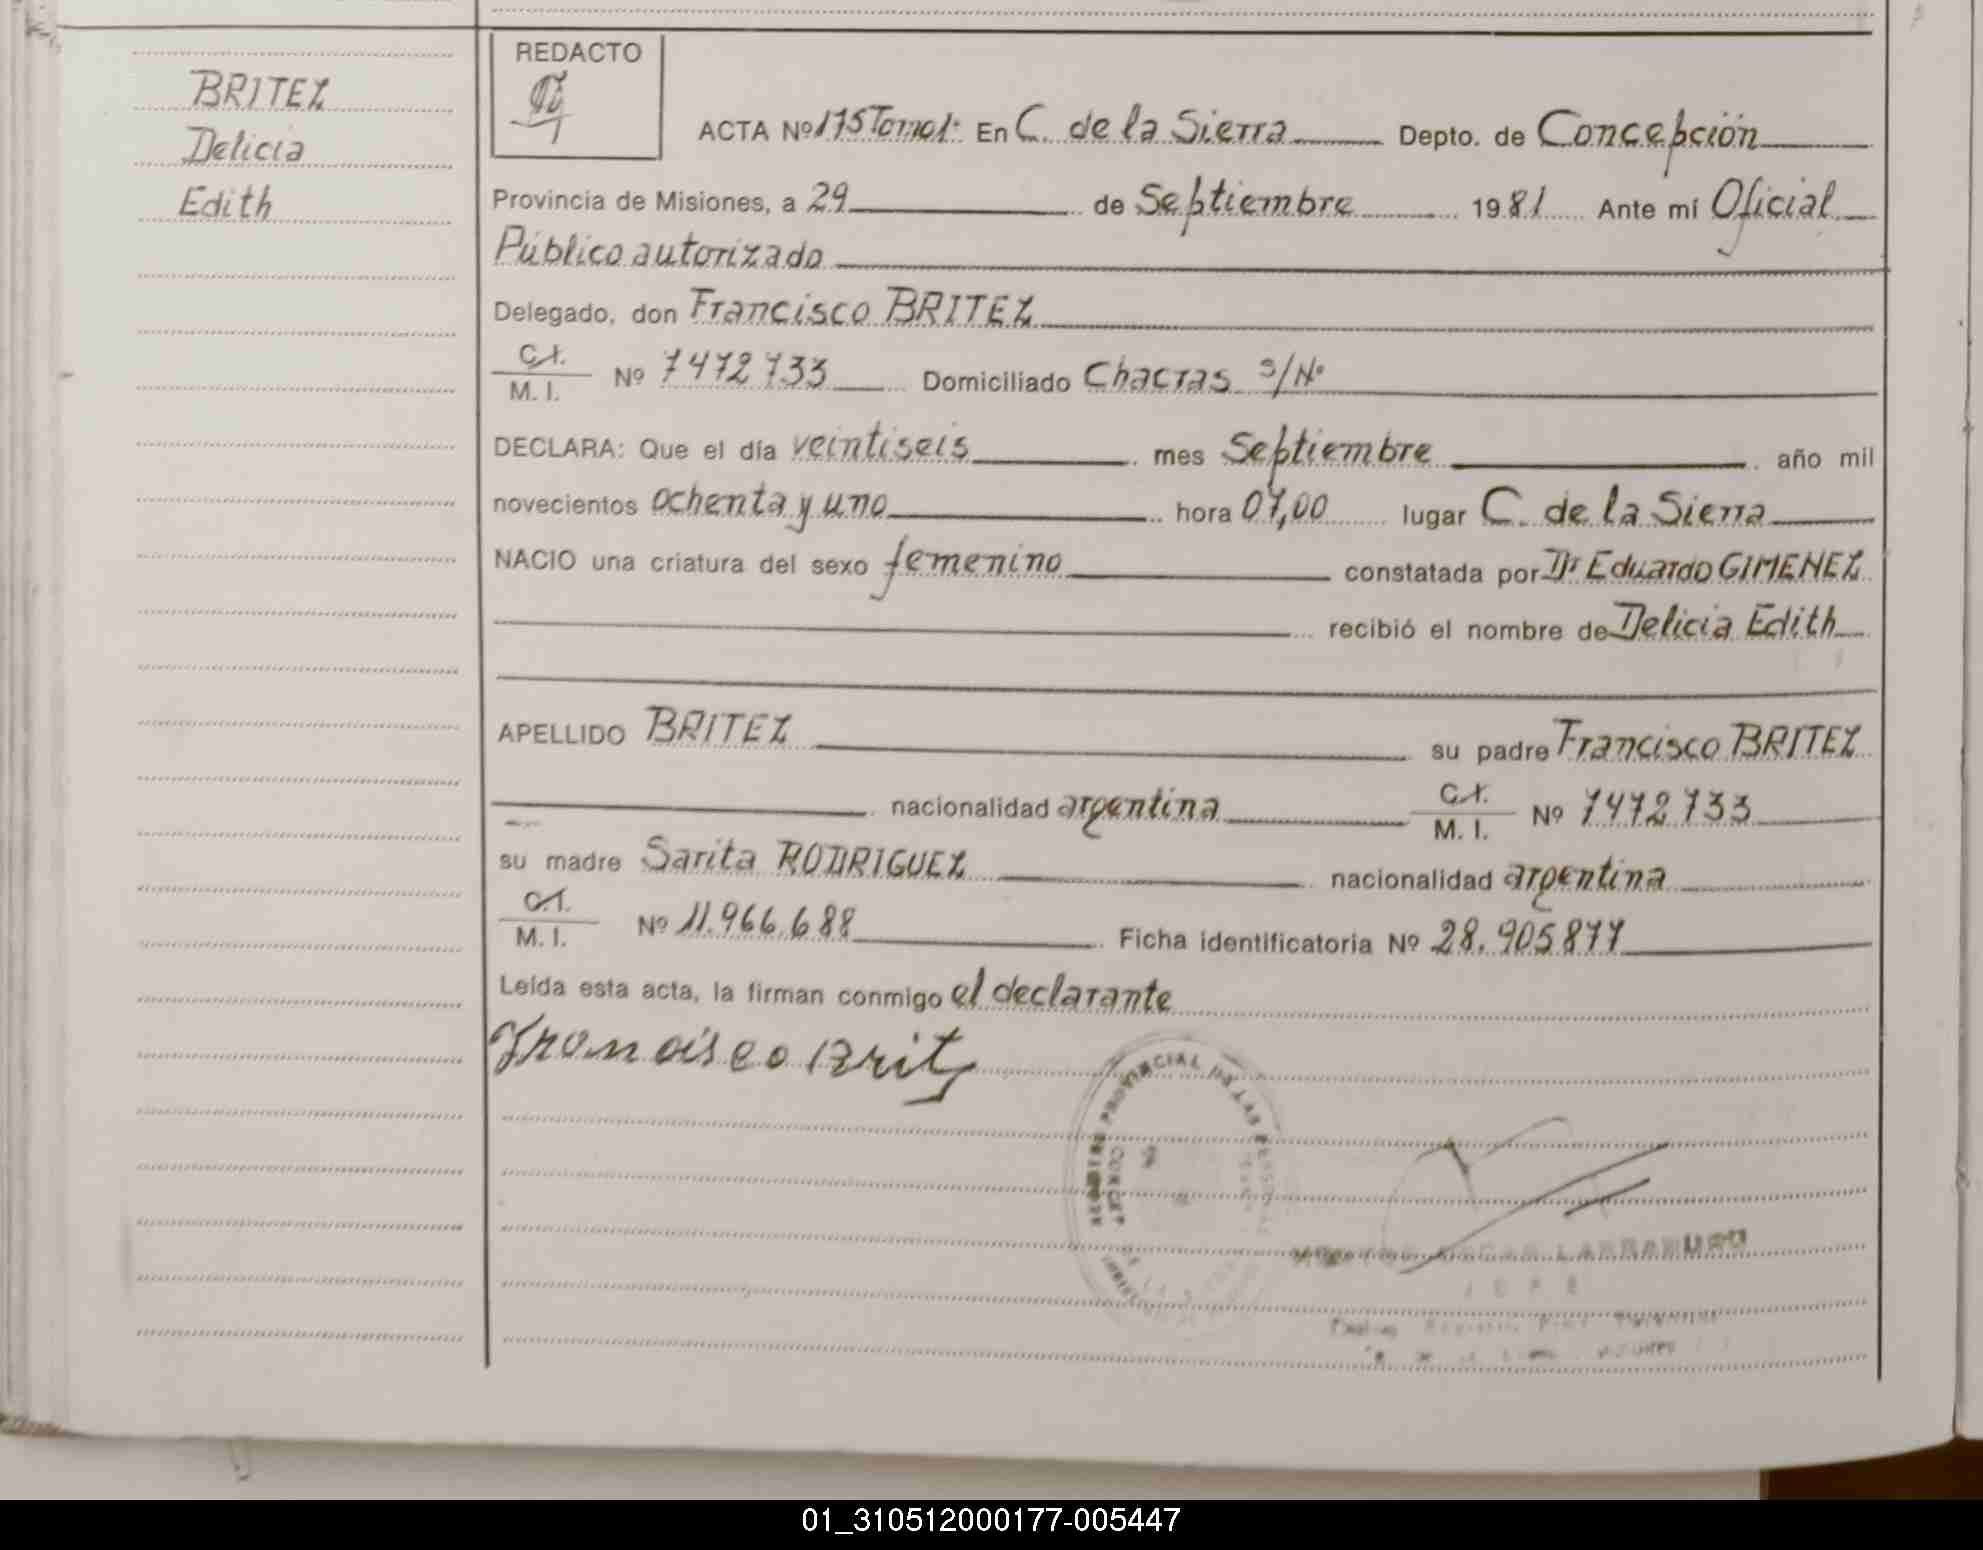 BRITEZ
Delicia
Edith
REDACTO
ACTA Nº 175 Tomo 1º En C. de la Sierra Depto. de Concepción
Provincia de Misiones, a 29 de Septiembre 1981 Ante mí Oficial
Público autorizado
Delegado, don Francisco BRITEZ
C.I.
M. I. Nº 7472733 Domiciliado Chacras s/Nº
DECLARA: Que el día veintiseis mes Septiembre año mil
novecientos ochenta y uno hora 07,00 lugar C. de la Sierra
NACIO una criatura del sexo femenino constatada por Dr Eduardo GIMENEZ
recibió el nombre de Delicia Edith
APELLIDO BRITEZ su padre Francisco BRITEZ
nacionalidad argentina C.I. M. I. Nº 7472733
su madre Sarita RODRIGUEZ nacionalidad argentina
C.I.
M. I. Nº 11.966.688 Ficha identificatoria Nº 28.905877
Leída esta acta, la firman conmigo el declarante
Francisco Brit
PROVINCIAL DE LAS
LARRABURU
JEFE
01_310512000177-005447